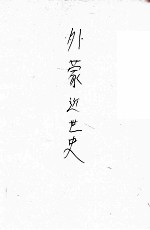 外蒙近世史